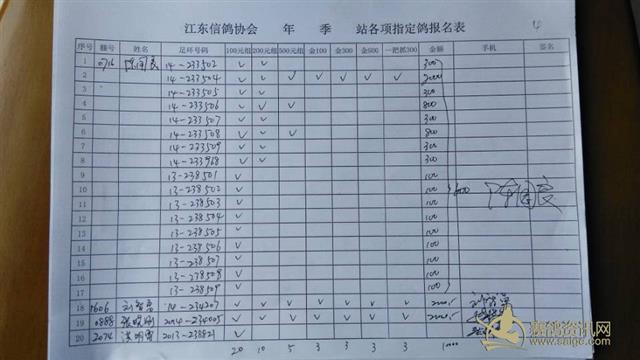 江东信鸽协会 年 季 站各项指定鸽报名表
序号 棚号 姓名 足环号码 100元组 200元组 500元组 金100 金300 金500 一把抓300 金额 手机 签名
1 0716 14-233502 ✓ ✓ 300
2 14-233504 ✓ ✓ ✓ ✓ ✓ ✓ ✓ 2000
3 14-233505 ✓ ✓ 300
4 14-233506 ✓ ✓ ✓ 800
5 14-233507 ✓ ✓ 300
6 14-233508 ✓ ✓ ✓ 800
7 14-233509 ✓ ✓ 300
8 14-233968 ✓ ✓ 300
9 13-238501 ✓ 100
10 13-238502 ✓ 100
11 13-238503 ✓ 100
12 13-238504 ✓ 100
13 13-238505 ✓ 100
14 13-238506 ✓ 100
15 13-238507 ✓ 100
16 13-238508 ✓ 100
17 13-238509 ✓ 100
18 1606 14-234207 ✓ ✓ ✓ ✓ ✓ ✓ ✓
19 0888 2014-234005 ✓ ✓ ✓ ✓ ✓ ✓ ✓
20 2074 2013-238821 ✓
20 10 5 3 3 3 3
赛鸽资讯网
www.saige.com